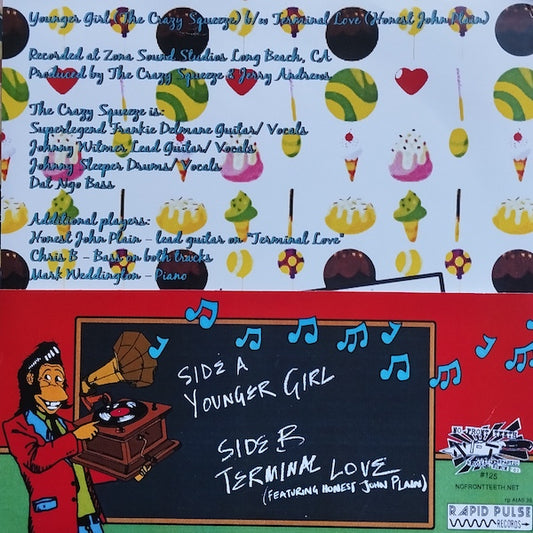 Younger Girl (The Crazy Squeeze) b/w Terminal Love (Honest John Plain)
Recorded at Zona Sound Studios Long Beach, CA
Produced by The Crazy Squeeze & Jerry Andrews
The Crazy Squeeze is:
Superlegend Frankie Delmane Guitar/ Vocals
Johnny Witmer Lead Guitar/ Vocals
Johnny Sleeper Drums/ Vocals
Dat Ngo Bass
Additional players:
Honest John Plain - lead guitar on "Terminal Love"
Chris B - Bass on both tracks
Mark Weddington - Piano
SIDE A
YOUNGER GIRL
SIDE B
TERMINAL LOVE
(FEATURING HONEST JOHN PLAIN)
NO FRONT TEETH
NFT
#125
NOFRONTTEETH.NET
RAPID PULSE
RECORDS